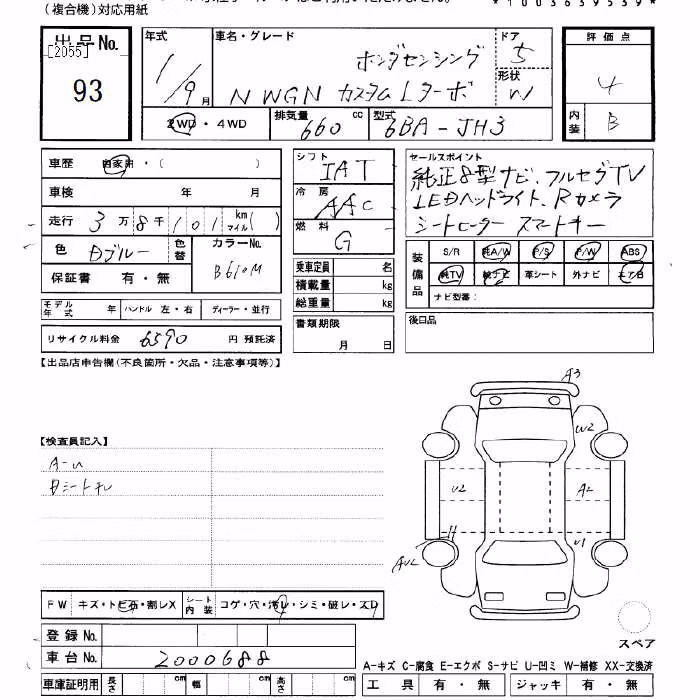 (複合機)対応用紙
*1003639539*
出品No.
[2055]
93
年式
1/9月
車名・グレード
ホンダセンシング
N WGN カスタム Lターボ
ドア
5
形状
W
評価点
4
内装
B
2WD・4WD
排気量
660 cc
型式
6BA-JH3
車歴
自家用・( )
車検 年 月
走行 3万8千101 km マイル( )
色 Dブルー
色替
カラーNo.
B610M
保証書 有・無
モデル年式 年 ハンドル 左・右 ディーラー・並行
リサイクル料金 6590 円 預託済
シフト
IAT
冷房
AAC
燃料
G
乗車定員 名
積載量 kg
総重量 kg
書類期限
月 日
セールスポイント
純正8型ナビ、フルセグTV
LEDヘッドライト、Rカメラ
シートヒーター スマートキー
装備品
S/R 純A/W P/S P/W ABS
純TV 純ナビ 革シート 外ナビ エアB
ナビ型番:
後日品
【出品店申告欄(不良箇所・欠品・注意事項等)】
【検査員記入】
A-u
Dシート
A3
W2
U2
A2
U1
AU2
FW キズ・トビ石・割レX シート内装 コゲ・穴・汚レ・シミ・破レ・スレ
登録No.
車台No. 2000688
車庫証明用 長さ cm 幅 cm 高さ cm
スペア
A-キズ C-腐食 E-エクボ S-サビ U-凹ミ W-補修 XX-交換済
工具 有・無 ジャッキ 有・無